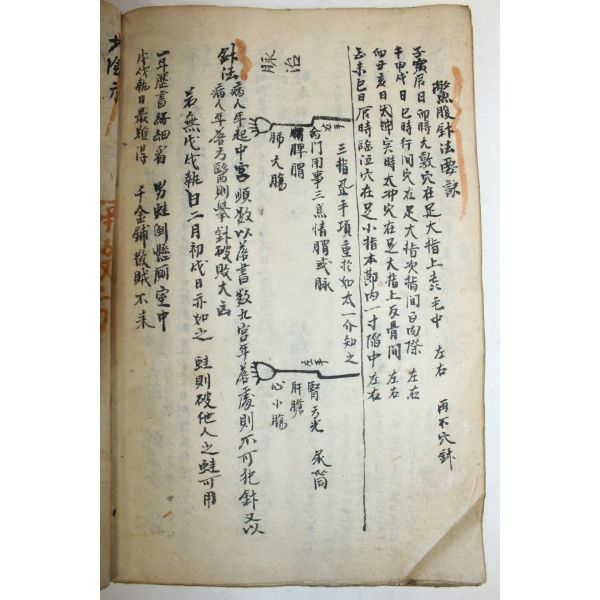 鱉腹針法要訣
子寅辰日卯時大敦穴在足大指上去毛中 左右 再不穴針
午申戌日巳時行間穴在足大指次指間白肉際 左右
卯丑亥日 時太冲穴在足大指上反骨間 左右
巳未巳日辰時臨泣穴在足小指本節內一寸陷中 左右
三指 手項重於如太一介知之
左手
右手
命門用事三焦情胃或脉
脾胃
肺大腸
腎方光 尿筒
肝膽
心小腸
治脉
針法 病人年起中宮順數以落書數九宮年落處則不可犯針又以
病人年落方醫則擧針破敗大凶
若無戊戌執日二月初戊日亦如之 蛙則破他人之蛙可用
一年歷書仔細看 男蛙倒懸厠室中
戊戌執日最難得 千金鋪散賊不來